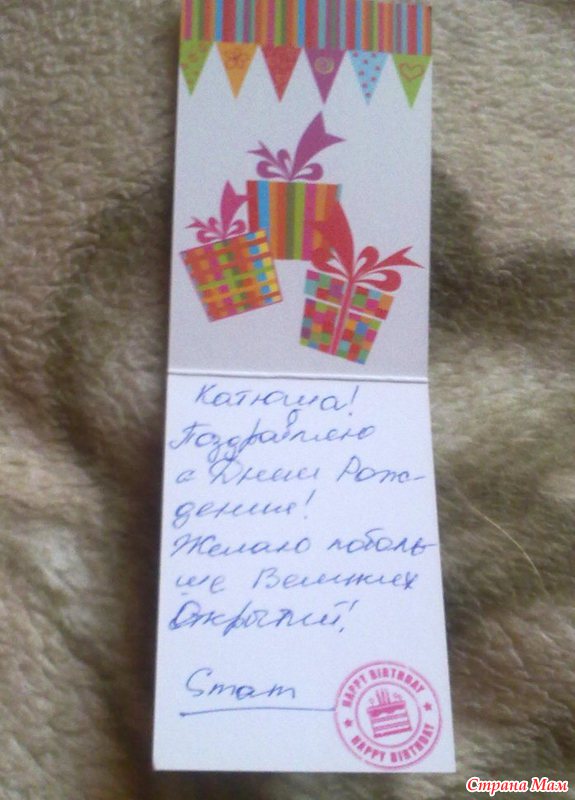 Катюша!
Поздравляю
с Днем Рож-
дения!
Желаю поболь-
ше Великих
Открытий!
Smam
HAPPY BIRTHDAY
HAPPY BIRTHDAY
Страна Мам